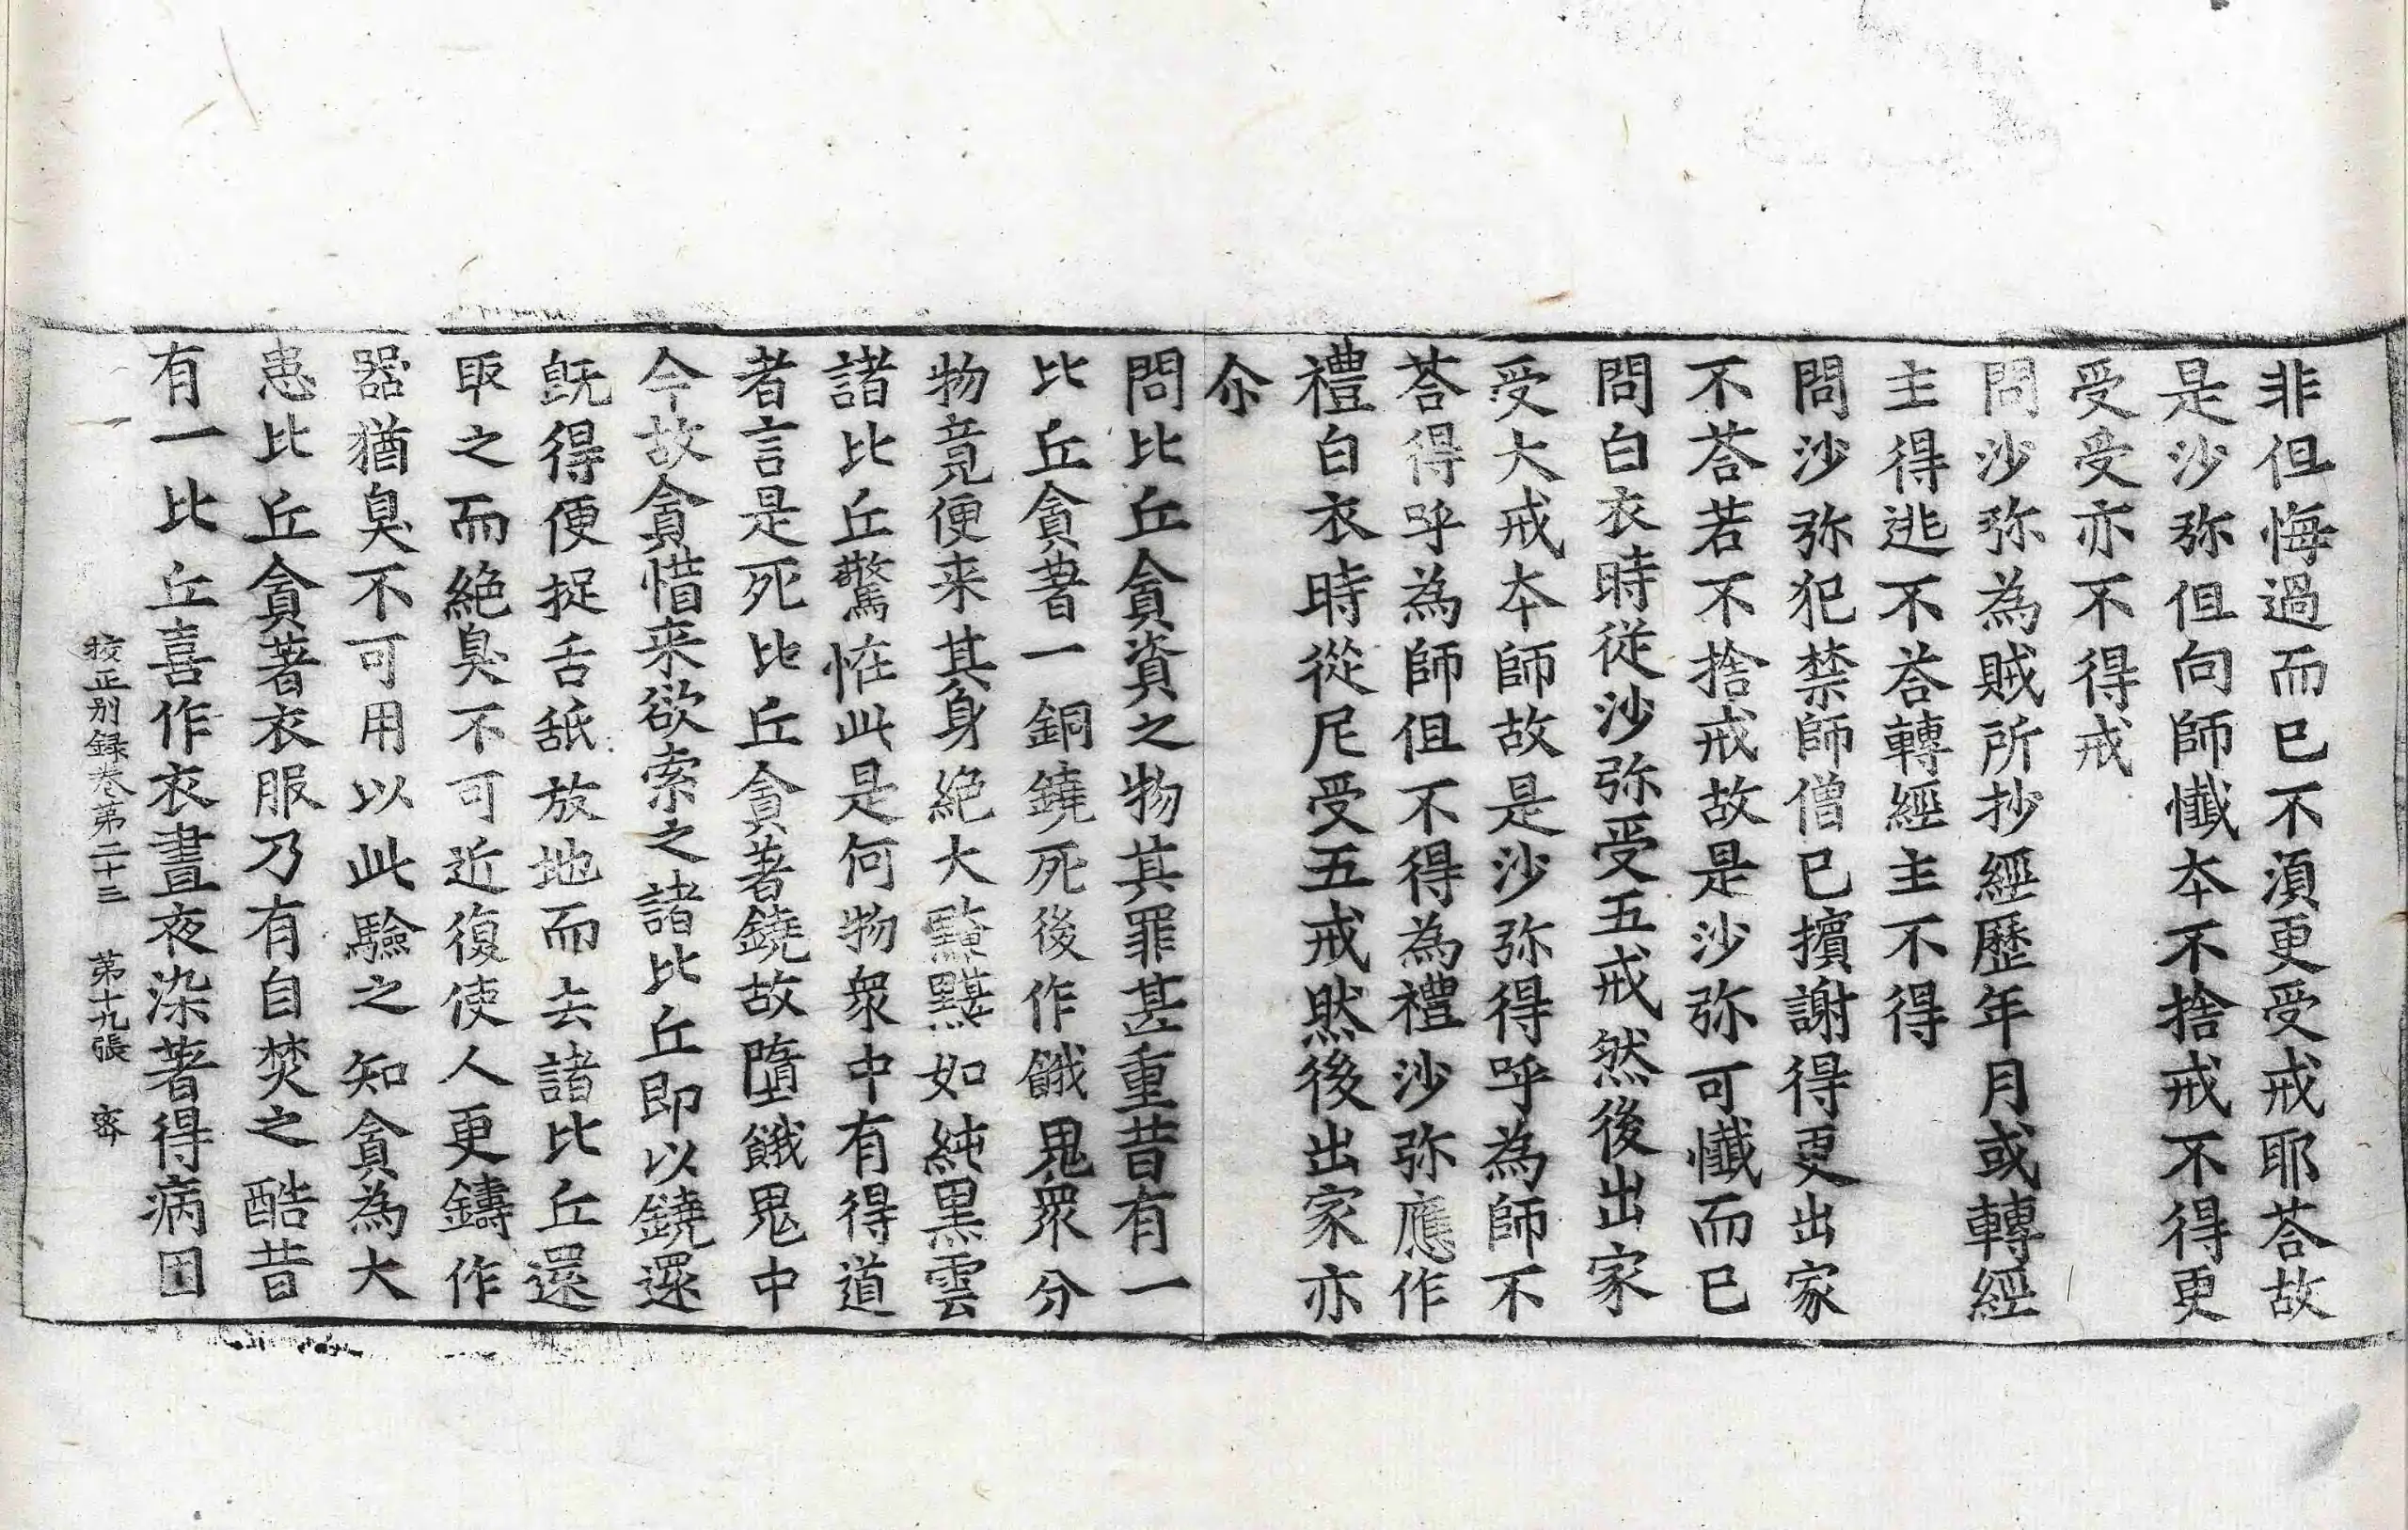 非但悔過而已不湏更受戒耶荅故
是沙弥但向師懺本不捨戒不得更
受受亦不得戒
問沙弥為賊所抄經歷年月或轉經
主得逃不荅轉經主不得
問沙弥犯禁師僧已擯謝得更出家
不荅若不捨戒故是沙弥可懺而已
問白衣時従沙弥受五戒然後出家
受大戒本師故是沙弥得呼為師不
荅得呼為師但不得為禮沙弥應作
禮白衣時從尼受五戒然後出家亦
尒
問比丘貪資之物其罪甚重昔有一
比丘貪著一銅鐃死後作餓鬼衆分
物竟便来其身絶大黤黮如純黒雲
諸比丘驚恠此是何物衆中有得道
者言是死比丘貪著鐃故墮餓鬼中
今故貪惜来欲索之諸比丘即以鐃還
既得便捉舌舐放地而去諸比丘還
取之而絶臭不可近復使人更鑄作
器猶臭不可用以此驗之知貪為大
患比丘貪著衣服乃有自焚之酷昔
有一比丘喜作衣晝夜染著得病困
校正别録卷第二十三　第十九張　宻